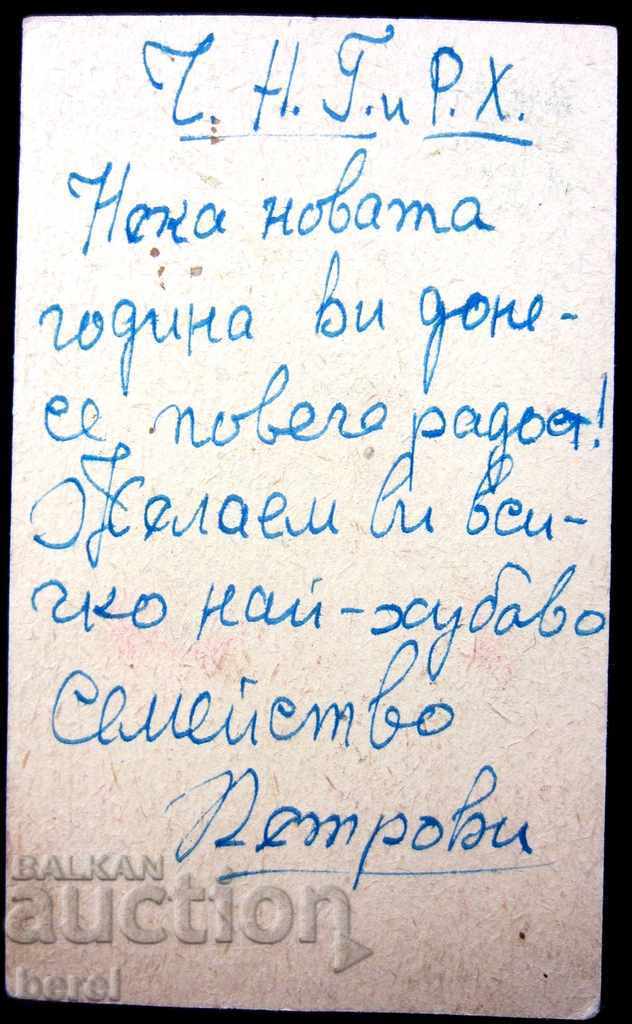 Ч. Н. Г. и Р. Х.
Нека новата
година ви доне-
се повече радост!
Желаем ви вси-
чко най-хубаво
Семейство
Петрови
BALKAN
auction
berel